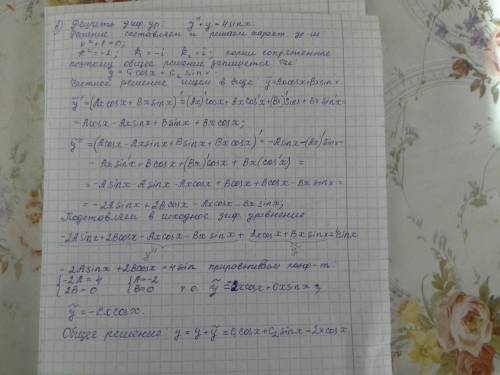 2) Решить диф. ур: y'' + y = 4 sin x.
Решение: составляем и решаем характ. ур-ие
k² + 1 = 0,
k² = -1; k₁ = -i k₂ = i; корни сопряженные
поэтому общее решение запишется так
y = C₁ cos x + C₂ sin x.
Частное решение ищем в виде ỹ = Ax cos x + Bx sin x
ỹ' = (Ax cos x + Bx sin x)' = (Ax)' cos x + Ax cos'x + (Bx)' sin x + Bx sin'x =
= A cos x - Ax sin x + B sin x + Bx cos x;
ỹ'' = (A cos x - Ax sin x + B sin x + Bx cos x)' = -A sin x - (Ax)' sin x -
- Ax sin'x + B cos x + (Bx)' cos x + Bx (cos x)' =
= -A sin x - A sin x - Ax cos x + B cos x + B cos x - Bx sin x =
= -2A sin x + 2B cos x - Ax cos x - Bx sin x;
Подставляем в исходное диф. уравнение
-2A sin x + 2B cos x - Ax cos x - Bx sin x + Ax cos x + Bx sin x = 4 sin x
ỹ'' ỹ
-2A sin x + 2B cos x = 4 sin x приравниваем коэф-т.
{-2A = 4 {A = -2
{2B = 0 {B = 0 т.о. ỹ = -2x cos x + 0x sin x;
ỹ = -2x cos x.
Общее решение: y = y + ỹ = C₁ cos x + C₂ sin x - 2x cos x